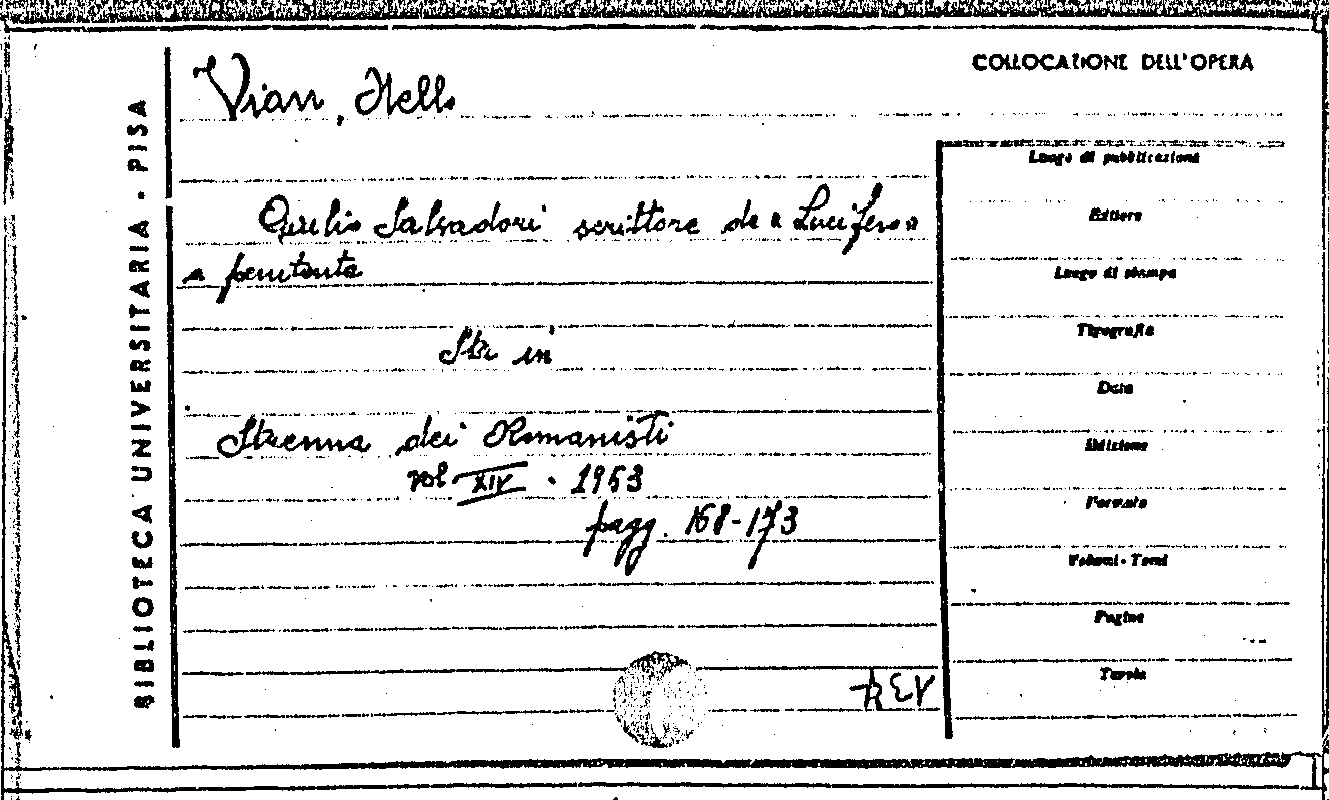 COLLOCAZIONE DELL'OPERA
Vian, Nello
BIBLIOTECA UNIVERSITARIA - PISA
Luogo di pubblicazione
Giulio Salvadori scrittore da « Lucifero »
a penitente
Editore
Luogo di stampa
Tipografia
Sta in
Data
Strenna dei Romanisti
Edizione
vol XIV . 1953
Formato
pagg. 168-173
Volumi - Tomi
Pagine
Tavole